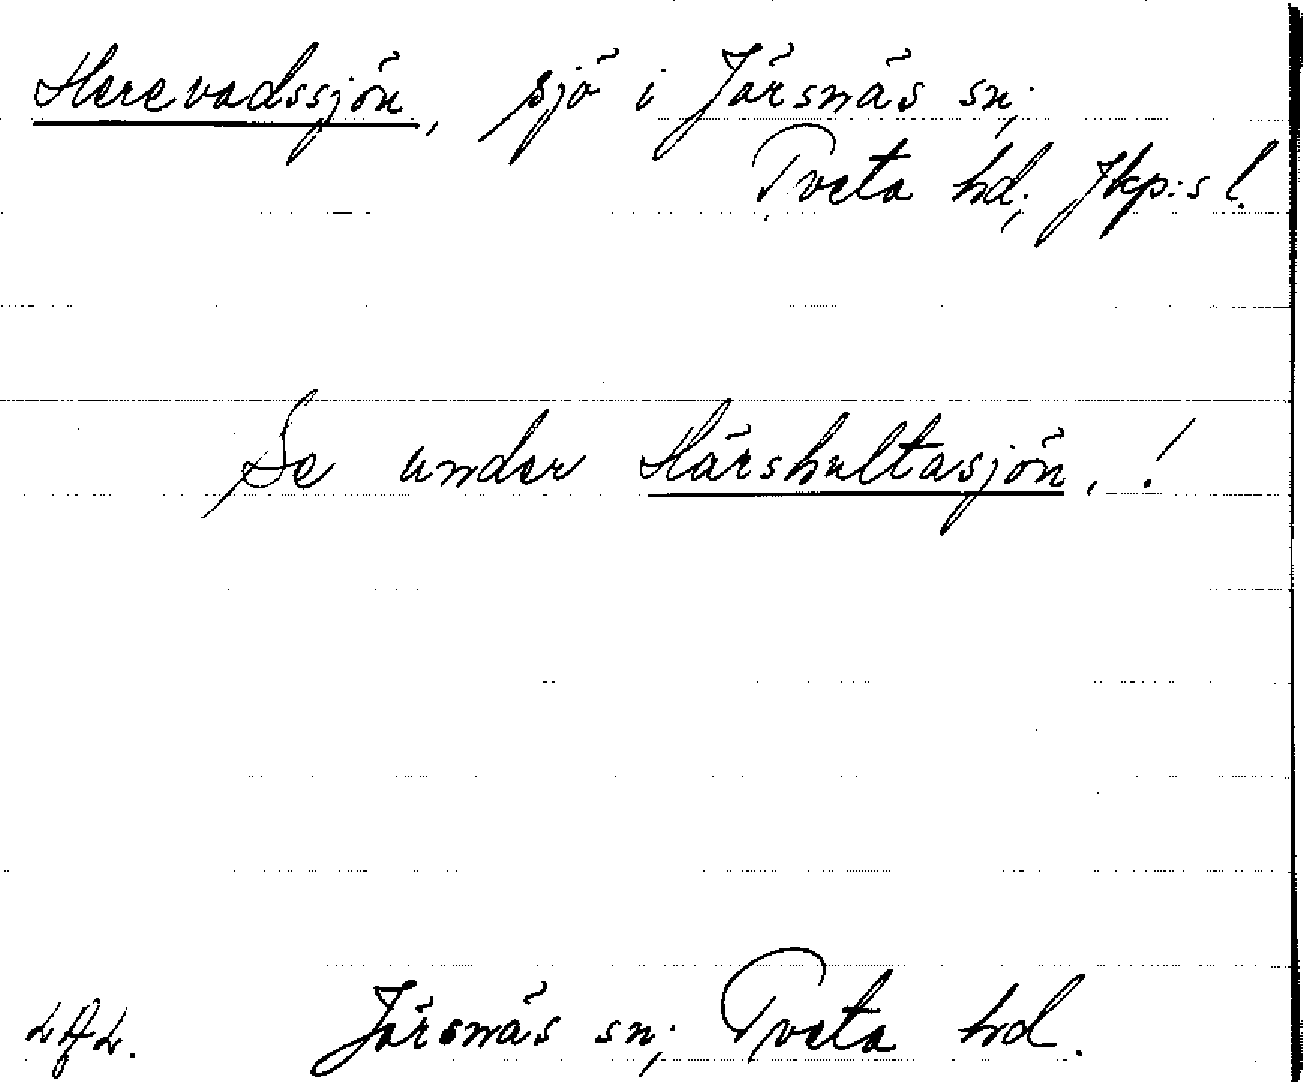 Herevadssjön, sjö i Järsnäs sn;
Tveta hd; Jkp:s l.
Se under Härshultasjön, !
Järsnäs sn; Tveta hd.